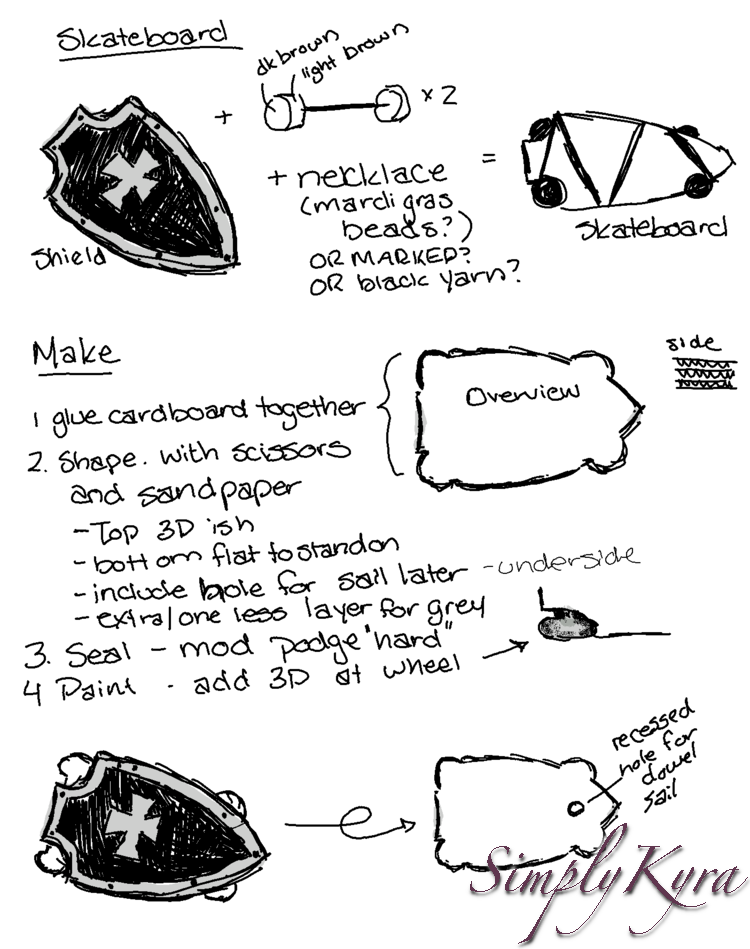 Skateboard
dk brown
light brown
+
x 2
+ necklace
(mardi gras
beads?)
OR MARKED?
OR black yarn?
=
Shield
Skateboard
Make
side
Overview
1 glue cardboard together
2. Shape. with scissors
and sandpaper
- Top 3D ish
- bottom flat to stand on
- include hole for sail later - underside
- extra/one less layer for grey
3. Seal - mod podge "hard"
4 Paint - add 3D at wheel
recessed
hole for
dowel
sail
SimplyKyra